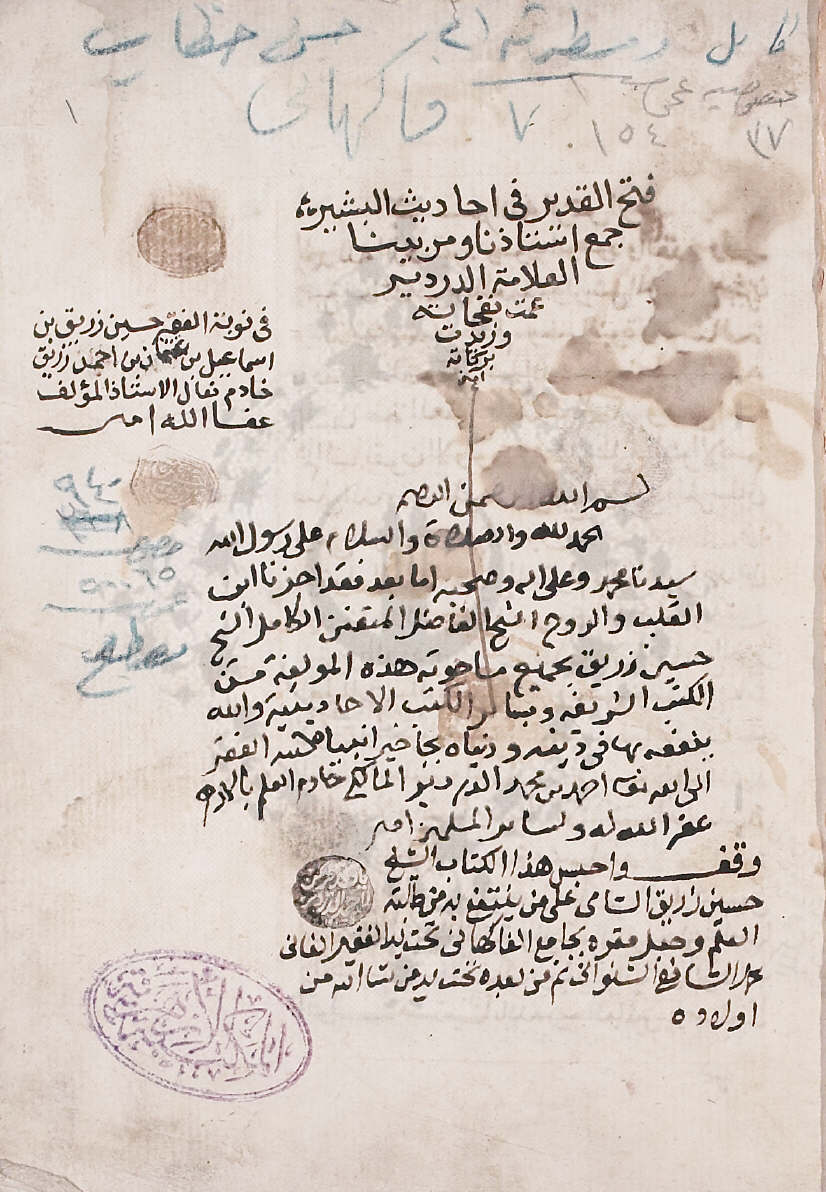 خصوصيه
٣٧
١٥٤
٧ فاكهانى
١
فتح القدير فى احاديث البشير
جمع استاذنا ومربينا
العلامة الدردير
عمت نفحاته
وزيدت
بركاته
امين
فى نوبة الفقير حسين زريق بن
اسماعيل بن عثمان بن احمد زريق
خادم نعال الاستاذ المؤلف
عفا الله امين
٩٤٠
بسم الله الرحمن الرحيم
الحمد لله والصلاة والسلام على رسول الله
سيدنا محمد وعلى اله وصحبه اما بعد فقد اجزنا ابن
القلب والروح الشيخ الفاضل المتقن الكامل الشيخ
حسين زريق بجميع ما حوته هذه المولفة من
الكتب الشريفه وبسائر الكتب الاحاديثية والله
ينفعه بها فى دينه ودنياه بجاه خير انبياه كتبه الفقير
الى الله احمد بن محمد الدردير المالكى خادم العلم بالازهر
غفر الله له ولسائر المسلمين امين
وقف واحبس هذا الكتاب الشيخ
حسين زريق الشامى على من ينتفع به من طلبة
العلم وجعل مقره بجامع الفاكهانى تحت يد الفقير الفانى
الشافعى الشنوانى ثم من بعده تحت يد من شا الله من
اولاده